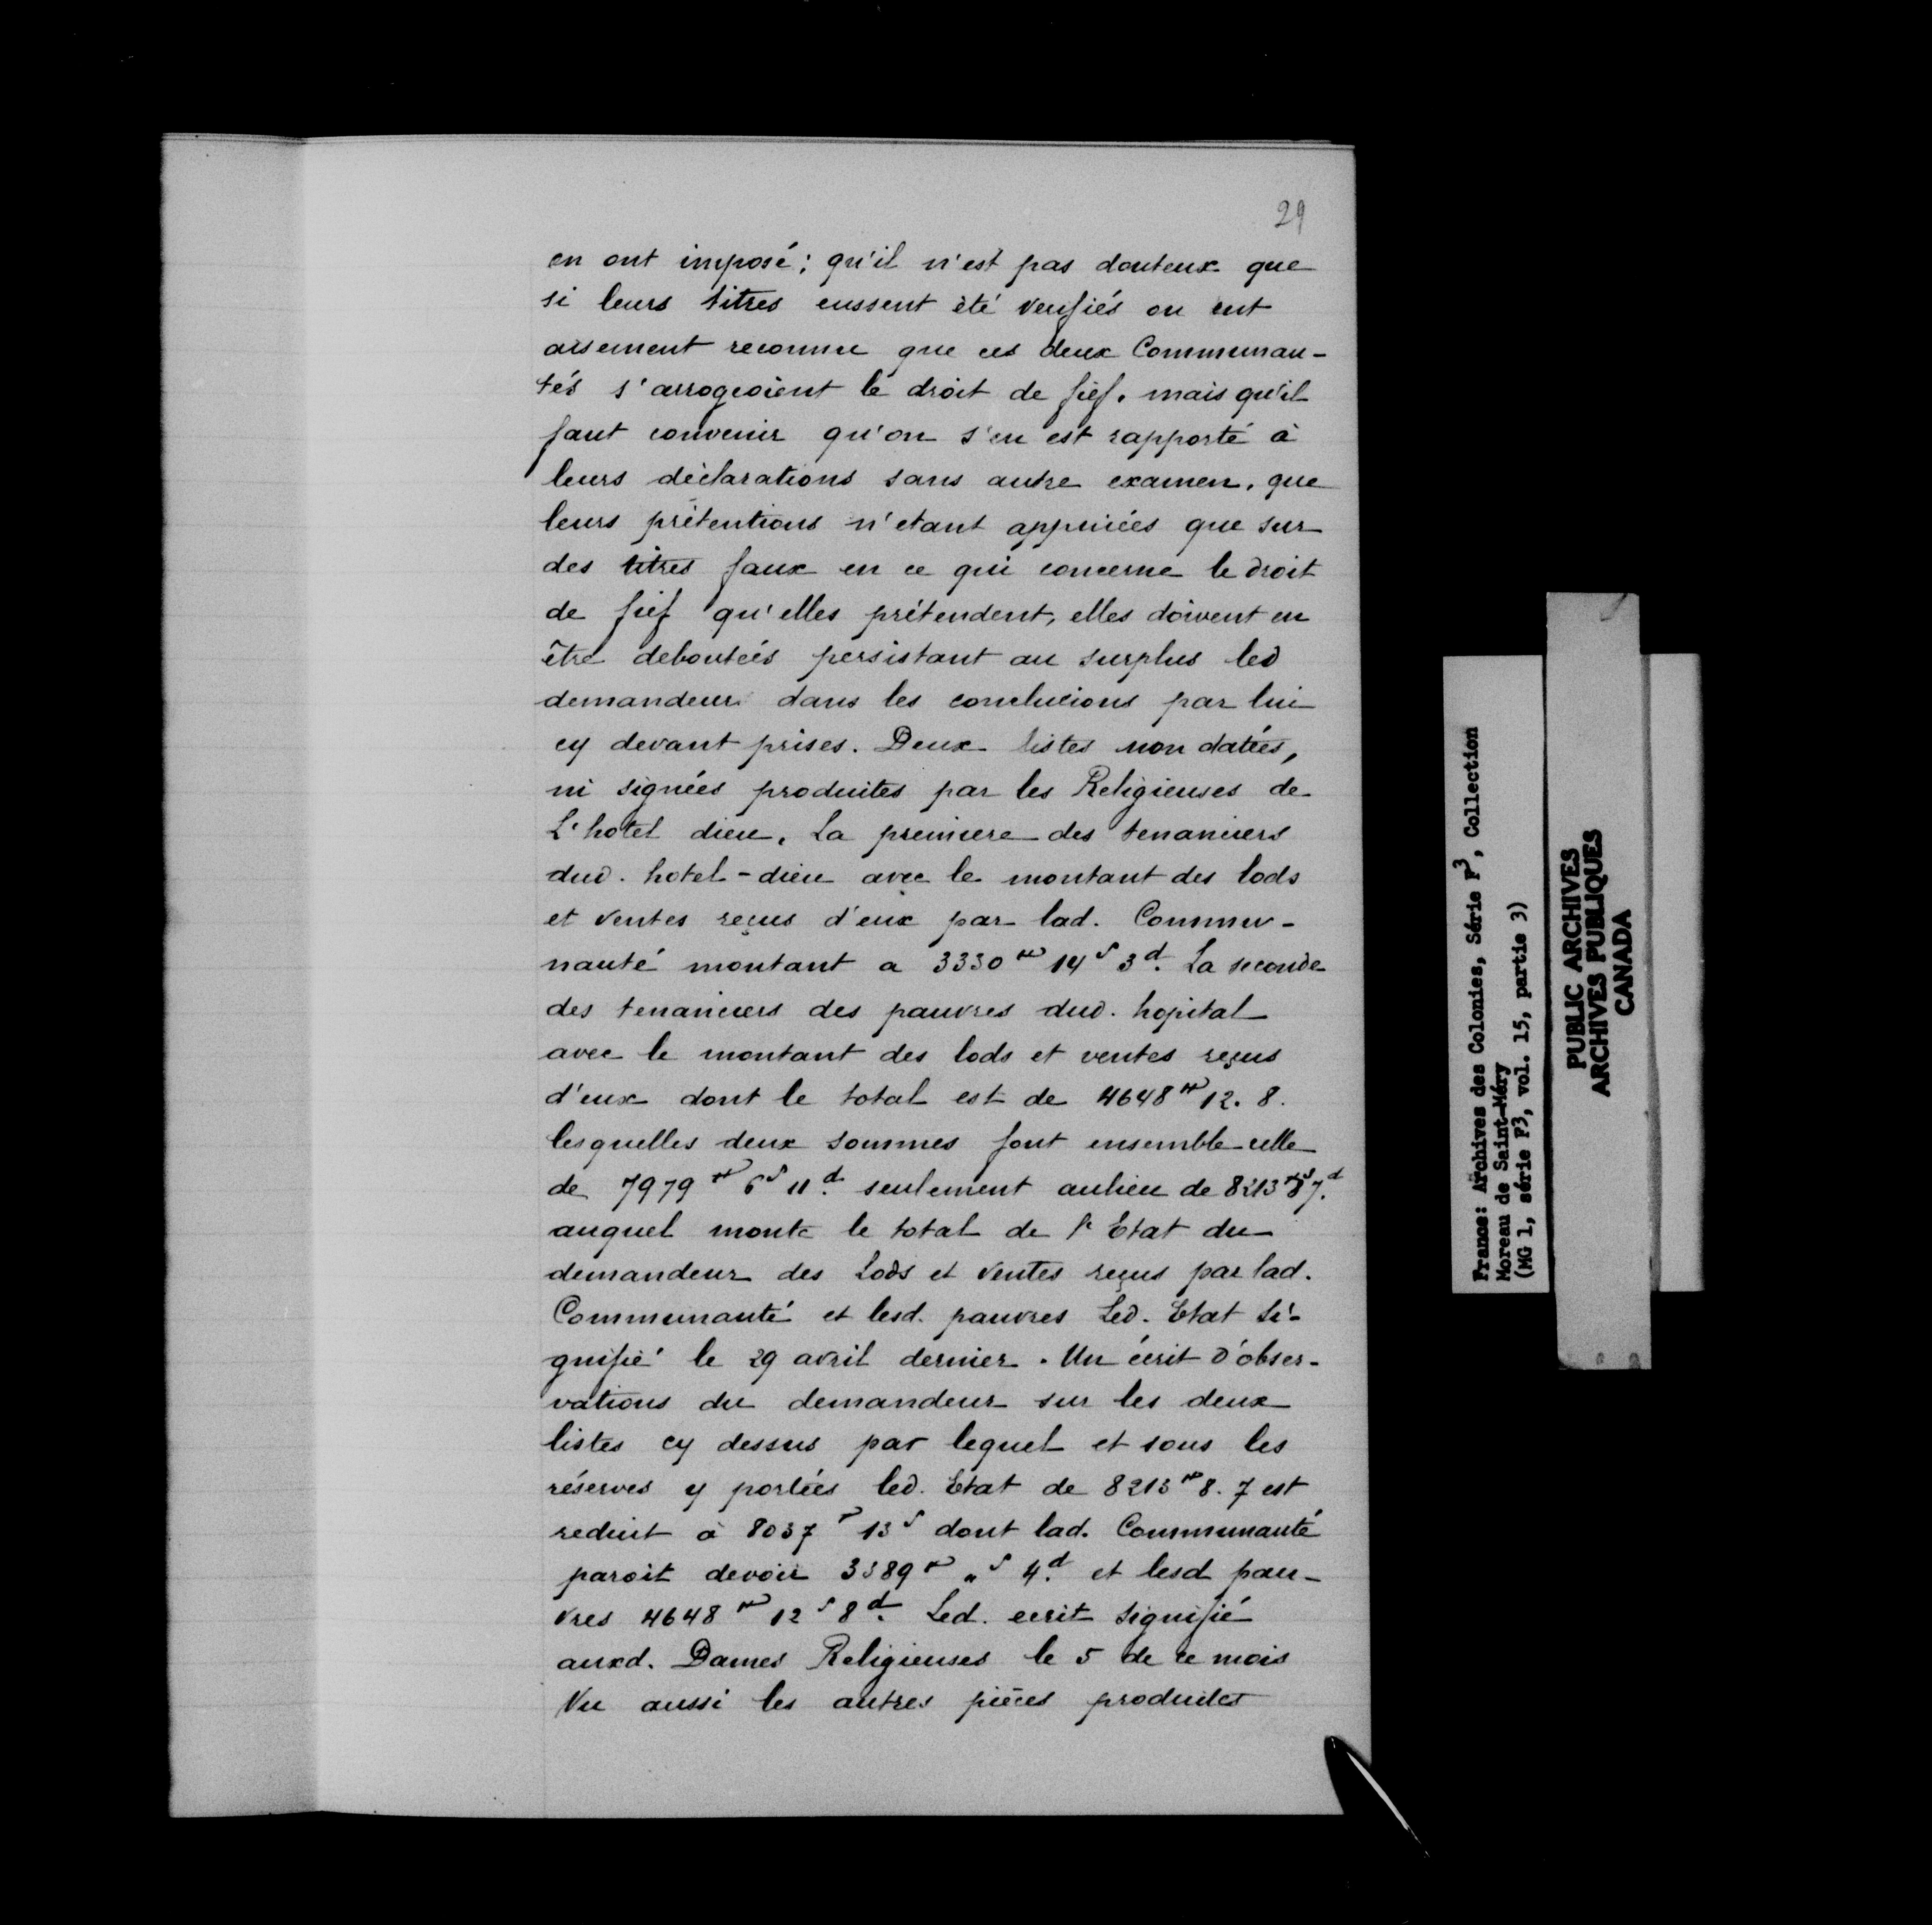 29
en ont imposé; qu'il n'est pas douteux que
si leurs titres eussent été verifiés on eut
aisement reconnu que ces deux Communau-
tés s'arrogeoient le droit de fief. mais qu'il
faut convenir qu'on s'en est rapporté à
leurs déclarations sans autre examen. que
leurs prétentions n'etant appuiées que sur
des titres faux en ce qui concerne le droit
de fief qu'elles prétendent, elles doivent en
être deboutées persistant au surplus led
demandeur dans les conclusions par lui
cy devant prises. Deux listes non datées,
ni signées produites par les Religieuses de
L'hotel dieu. La premiere des tenanciers
dud. hotel-dieu avec le montant des lods
et ventes reçus d'eux par lad. Commu-
nauté montant a 3330 ᵗᵗ 14 ˢ 3 ᵈ. La seconde
des tenanciers des pauvres dud. hopital
avec le montant des lods et ventes reçus
d'eux dont le total est de 4648 ᵗᵗ 12. 8.
lesquelles deux sommes font ensemble celle
de 7979 ᵗᵗ 6 ˢ 11 ᵈ. seulement aulieu de 8213 ᵗᵗ 8 ˢ 7 ᵈ.
auquel monte le total de l'Etat du
demandeur des Lods et ventes reçus par lad.
Communauté et lesd. pauvres Led. Etat si-
gnifié le 29 avril dernier. Un écrit d'obser-
vations du demandeur sur les deux
listes cy dessus par lequel et sous les
réserves y portées led. Etat de 8213 ᵗᵗ 8. 7 est
reduit à 8037 ᵗᵗ 13 ˢ dont lad. Communauté
paroit devoir 3389 ᵗᵗ „ ˢ 4 ᵈ. et lesd pau-
vres 4648 ᵗᵗ 12 ˢ 8 ᵈ. Led. ecrit signifié
auxd. Dames Religieuses le 5 de ce mois
Vu aussi les autres pièces produites
France: Archives des Colonies, Série F³, Collection
Moreau de Saint-Méry
(MG 1, série F3, vol. 15, partie 3)
PUBLIC ARCHIVES
ARCHIVES PUBLIQUES
CANADA